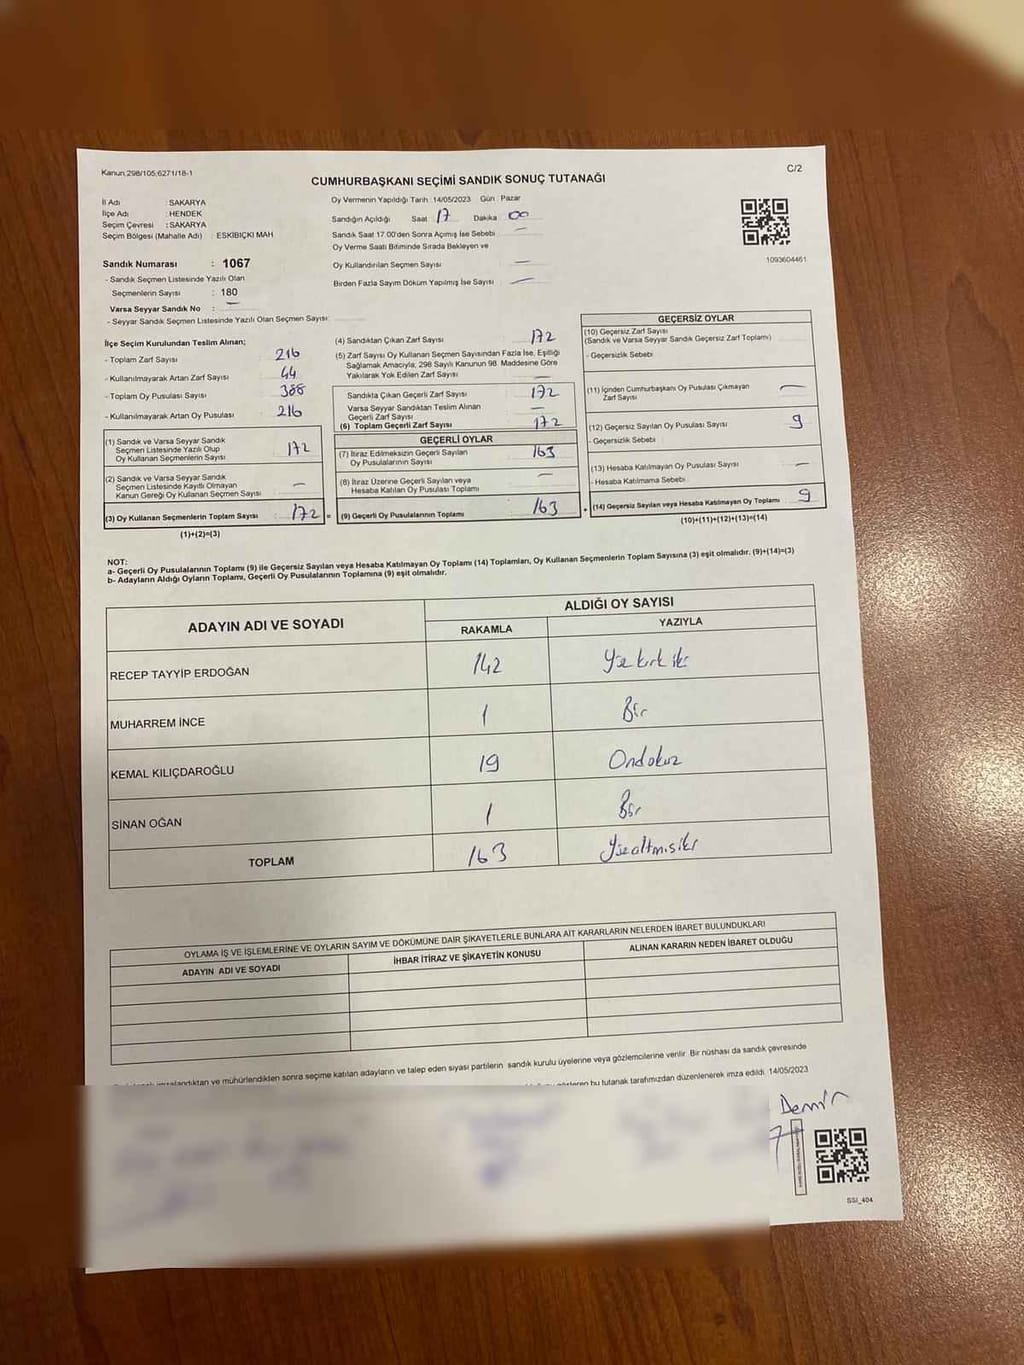 Kanun;298/105;6271/18-1
C/2
CUMHURBAŞKANI SEÇİMİ SANDIK SONUÇ TUTANAĞI
İl Adı : SAKARYA
İlçe Adı : HENDEK
Seçim Çevresi : SAKARYA
Seçim Bölgesi (Mahalle Adı) : ESKİBIÇKI MAH
Sandık Numarası : 1067
- Sandık Seçmen Listesinde Yazılı Olan
Seçmenlerin Sayısı : 180
Varsa Seyyar Sandık No : —
- Seyyar Sandık Seçmen Listesinde Yazılı Olan Seçmen Sayısı:
Oy Vermenin Yapıldığı Tarih :14/05/2023 Gün : Pazar
Sandığın Açıldığı Saat 17 Dakika 00
Sandık Saat 17.00'den Sonra Açımış İse Sebebi —
Oy Verme Saati Bitiminde Sırada Bekleyen ve
Oy Kullandırılan Seçmen Sayısı —
Birden Fazla Sayım Döküm Yapılmış İse Sayısı —
1093604461
İlçe Seçim Kurulundan Teslim Alınan;
- Toplam Zarf Sayısı : 216
- Kullanılmayarak Artan Zarf Sayısı : 44
- Toplam Oy Pusulası Sayısı : 388
- Kullanılmayarak Artan Oy Pusulası : 216
(1) Sandık ve Varsa Seyyar Sandık
Seçmen Listesinde Yazılı Olup
Oy Kullanan Seçmenlerin Sayısı : 172
(2) Sandık ve Varsa Seyyar Sandık
Seçmen Listesinde Kayıtlı Olmayan
Kanun Gereği Oy Kullanan Seçmen Sayısı : —
(3) Oy Kullanan Seçmenlerin Toplam Sayısı : 172 =
(1)+(2)=(3)
(4) Sandıktan Çıkan Zarf Sayısı : 172
(5) Zarf Sayısı Oy Kullanan Seçmen Sayısından Fazla İse, Eşitliği
Sağlamak Amacıyla, 298 Sayılı Kanunun 98. Maddesine Göre
Yakılarak Yok Edilen Zarf Sayısı : —
Sandıkta Çıkan Geçerli Zarf Sayısı : 172
Varsa Seyyar Sandıktan Teslim Alınan
Geçerli Zarf Sayısı : —
(6) Toplam Geçerli Zarf Sayısı : 172
GEÇERLİ OYLAR
(7) İtiraz Edilmeksizin Geçerli Sayılan
Oy Pusulalarının Sayısı : 163
(8) İtiraz Üzerine Geçerli Sayılan veya
Hesaba Katılan Oy Pusulası Toplamı : —
(9) Geçerli Oy Pusulalarının Toplamı : 163 +
GEÇERSİZ OYLAR
(10) Geçersiz Zarf Sayısı
(Sandık ve Varsa Seyyar Sandık Geçersiz Zarf Toplamı)
- Geçersizlik Sebebi
(11) İçinden Cumhurbaşkanı Oy Pusulası Çıkmayan
Zarf Sayısı —
(12) Geçersiz Sayılan Oy Pusulası Sayısı : 9
- Geçersizlik Sebebi
(13) Hesaba Katılmayan Oy Pusulası Sayısı : —
- Hesaba Katılmama Sebebi
(14) Geçersiz Sayılan veya Hesaba Katılmayan Oy Toplamı : 9
(10)+(11)+(12)+(13)=(14)
NOT:
a- Geçerli Oy Pusulalarının Toplamı (9) ile Geçersiz Sayılan veya Hesaba Katılmayan Oy Toplamı (14) Toplamları, Oy Kullanan Seçmenlerin Toplam Sayısına (3) eşit olmalıdır. (9)+(14)=(3)
b- Adayların Aldığı Oyların Toplamı, Geçerli Oy Pusulalarının Toplamına (9) eşit olmalıdır.
ADAYIN ADI VE SOYADI
ALDIĞI OY SAYISI
RAKAMLA YAZIYLA
RECEP TAYYİP ERDOĞAN 142 Yüzkırk iki
MUHARREM İNCE 1 Bir
KEMAL KILIÇDAROĞLU 19 Ondokuz
SİNAN OĞAN 1 Bir
TOPLAM 163
OYLAMA İŞ VE İŞLEMLERİNE VE OYLARIN SAYIM VE DÖKÜMÜNE DAİR ŞİKAYETLERLE BUNLARA AİT KARARLARIN NELERDEN İBARET BULUNDUKLARI
ADAYIN ADI VE SOYADI İHBAR İTİRAZ VE ŞİKAYETİN KONUSU ALINAN KARARIN NEDEN İBARET OLDUĞU
imzalandıktan ve mühürlendikten sonra seçime katılan adayların ve talep eden siyasi partilerin sandık kurulu üyelerine veya gözlemcilerine verilir. Bir nüshası da sandık çevresinde
bu tutanak tarafımızdan düzenlenerek imza edildi. 14/05/2023
SSI_404